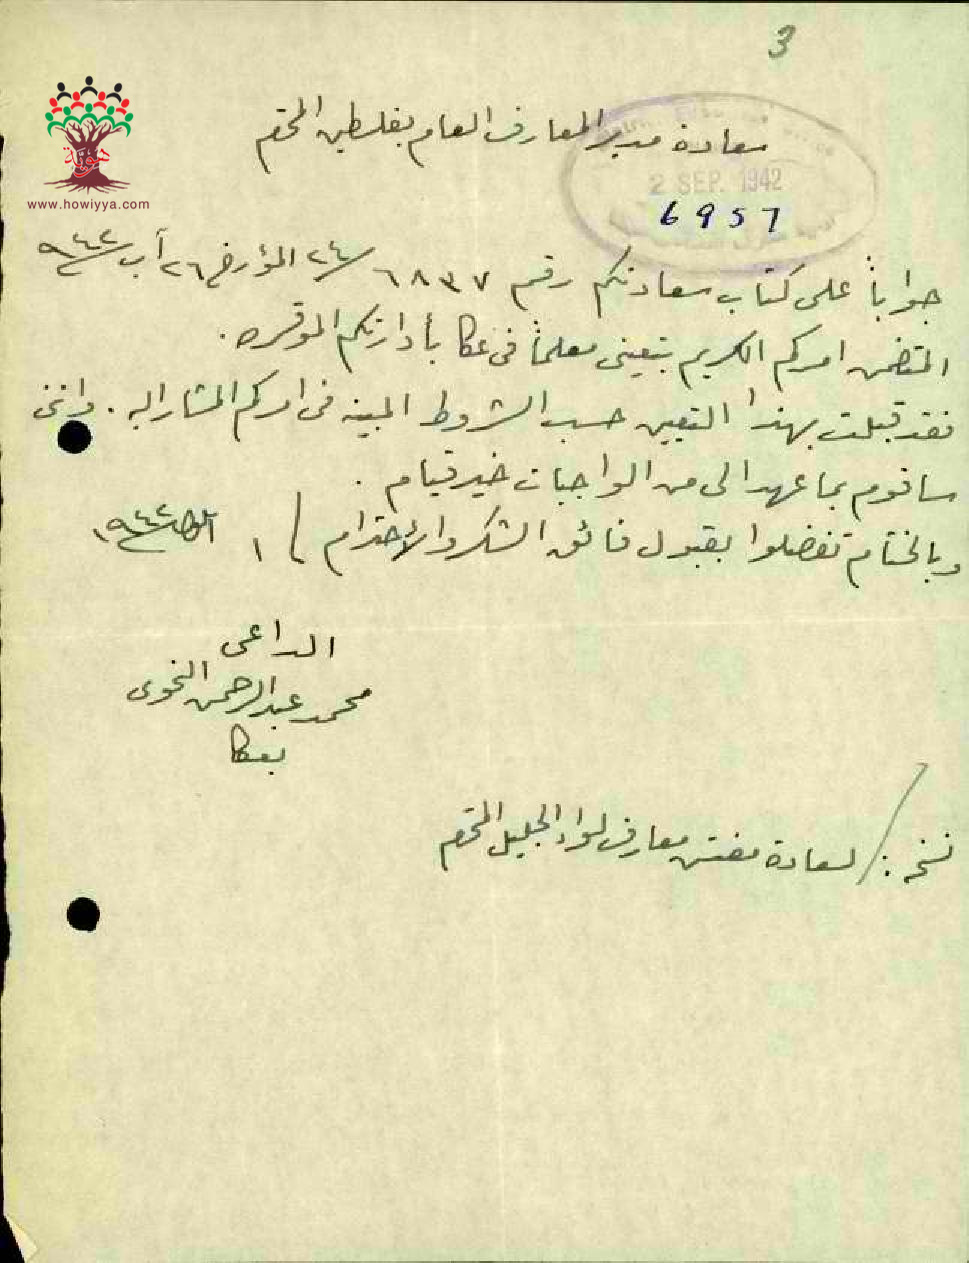 3
هوية
www.howiyya.com
سعادة مدير المعارف العام بفلسطين المحترم
2 SEP. 1942
6957
جواباً على كتاب سعادتكم رقم ٦٨٣٧/٢٤ المؤرخ ٢٦ آب ٩٤٢
المتضمن امركم الكريم بتعيني معلماً في عكا بأدارتكم الموقره .
فقد قبلت بهذا التعيين حسب الشروط المبينه في امركم المشار اليه . وانني
ساقوم بما عهد الى من الواجبات خير قيام .
وبالختام تفضلوا بقبول فائق الشكر والأحترام / ١ ٩٤٢
الداعي
محمد عبد الرحمن النحوي
بعكا
نسخه : / لسعادة مفتش معارف لواء الجليل المحترم